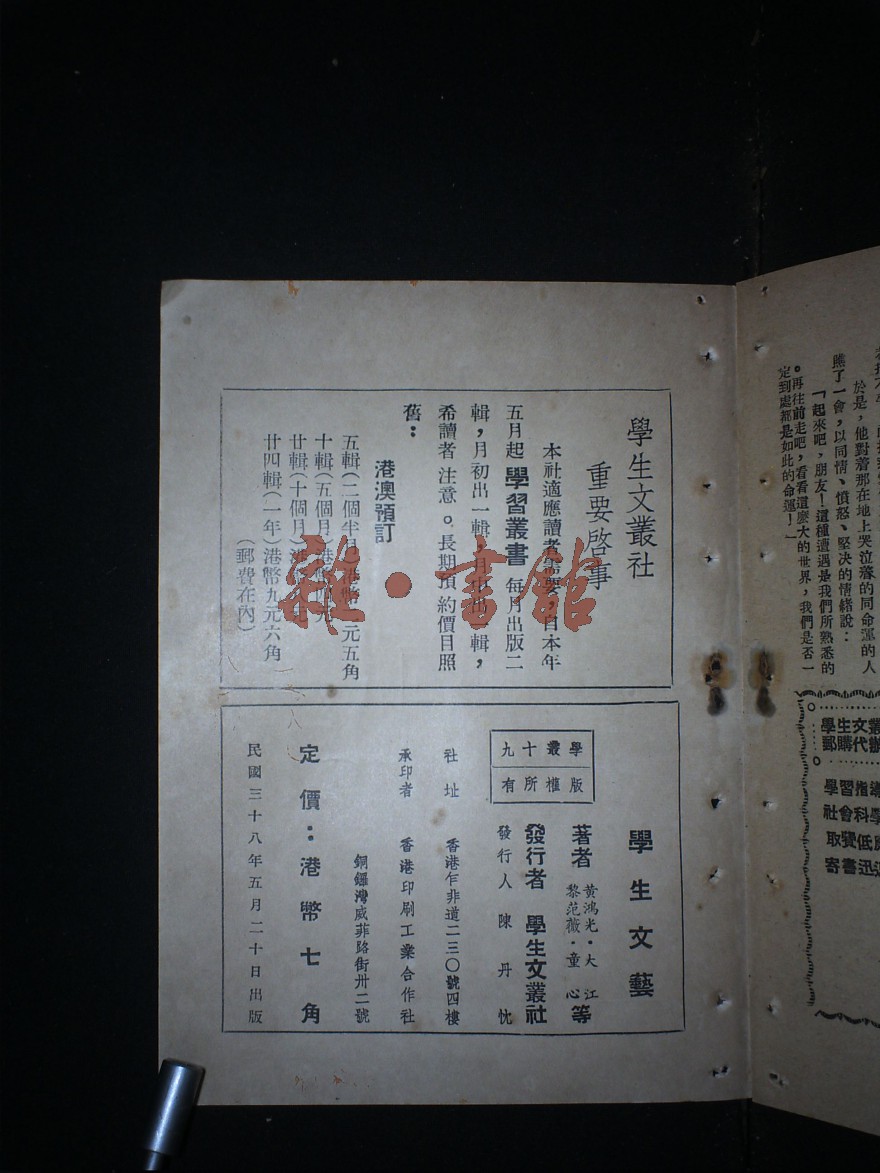 學生文叢社
重要啓事
本社適應讀者需要，自本年
五月起學習叢書每月出版二
輯，月初出一輯，月中出一輯，
希讀者注意。長期預約價目照
舊：
港澳預訂
五輯（二個半月）港幣二元五角
十輯（五個月）港幣
廿輯（十個月）港
廿四輯（一年）港幣九元六角
（郵費在內）
學生文藝
學叢十九
版權所有
著者 黃鴻光・大江
黎范薇・童心等
發行者 學生文叢社
發行人 陳丹忱
社址 香港乍非道二三〇號四樓
承印者 香港印刷工業合作社
銅鑼灣威菲路街卅二號
定價：港幣七角
民國三十八年五月二十日出版
於是，他對着那在地上哭泣着的同命運的人
瞧了一會，以同情、憤怒、堅决的情緒說：
「起來吧，朋友！這種遭遇是我們所熟悉的
。再往前走吧，看看這麼大的世界，我們是否一
定到處都是如此的命運！」
學生文叢
郵購代辦
學習指導
社會科學
取費低廉
寄書迅速
雜・書館